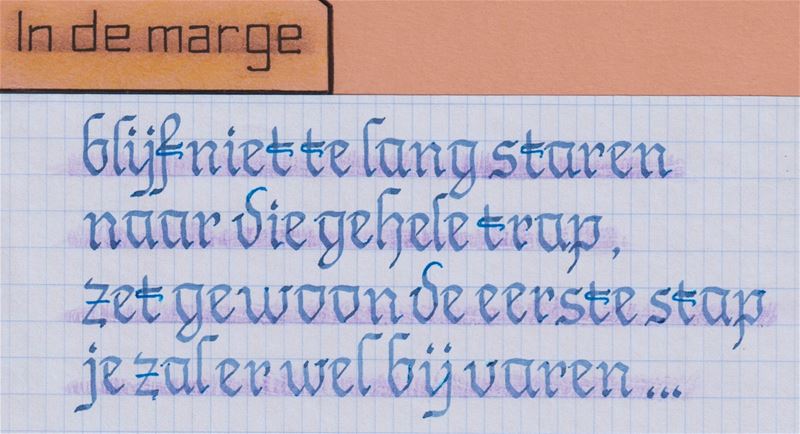 In de marge
blijf niet te lang staren
naar die gehele trap,
zet gewoon de eerste stap
je zal er wel bij varen...